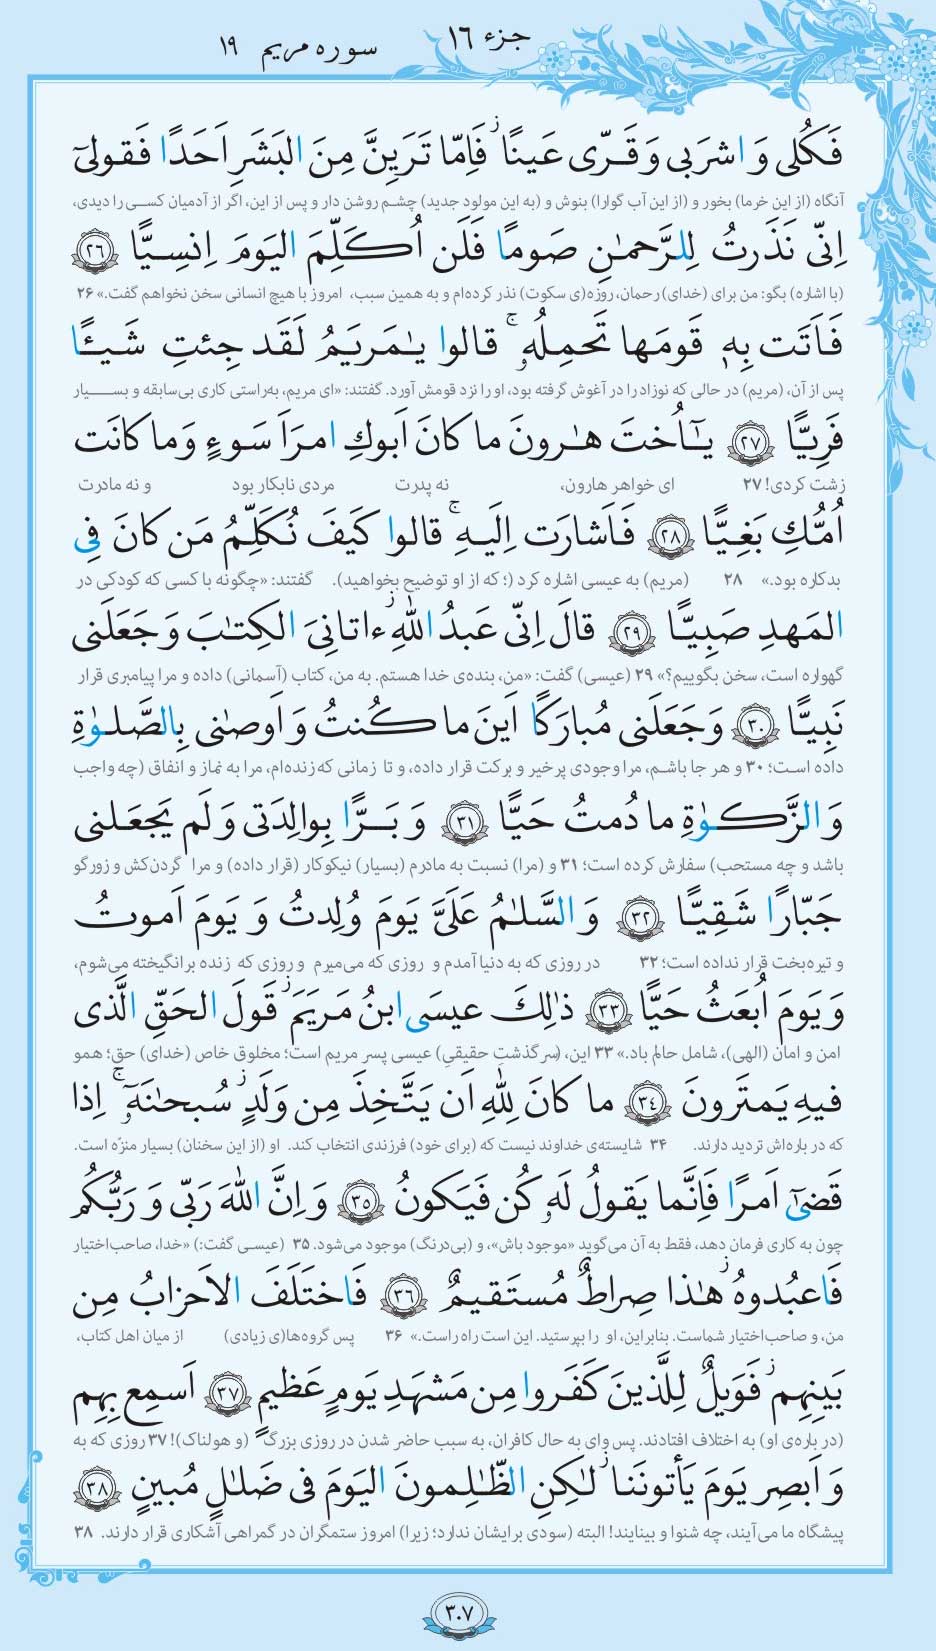 جزء ١٦
سوره مریم ١٩
فَكُلی وَ اشرَبی وَ قَرّی عَینًا ۖ فَاِمّا تَرَیِنَّ مِنَ البَشَرِ اَحَدًا فَقولیٓ
آنگاه (از این خرما) بخور و (از این آب گوارا) بنوش و (به این مولود جدید) چشم روشن دار و پس از این، اگر از آدمیان کسی را دیدی،
اِنّی نَذَرتُ لِلرَّحمـٰنِ صَومًا فَلَن اُكَلِّمَ الیَومَ اِنسِیًّا ﴿٢٦﴾
(با اشاره) بگو: من برای (خدای) رحمان، روزه(ی سکوت) نذر کرده‌ام و به همین سبب، امروز با هیچ انسانی سخن نخواهم گفت.» ۲۶
فَاَتَت بِهٖ قَومَها تَحمِلُهٗ ۚ قالوا یـٰمَریَمُ لَقَد جِئتِ شَیـًٔا
پس از آن، (مریم) در حالی که نوزاد را در آغوش گرفته بود، او را نزد قومش آورد. گفتند: «ای مریم، به‌راستی کاری بی‌سابقه و بسیار
فَرِیًّا ﴿٢٧﴾ یـٰٓاُختَ هـٰرونَ ما كانَ اَبوكِ امرَاَ سَوءٍ وَ ما كانَت
زشت کردی! ۲۷ ای خواهر هارون، نه پدرت مردی نابکار بود و نه مادرت
اُمُّكِ بَغِیًّا ﴿٢٨﴾ فَاَشارَت اِلَیهِ ۚ قالوا كَیفَ نُكَلِّمُ مَن كانَ فِی
بدکاره بود.» ۲۸ (مریم) به عیسی اشاره کرد (؛ که از او توضیح بخواهید). گفتند: «چگونه با کسی که کودکی در
المَهدِ صَبِیًّا ﴿٢٩﴾ قالَ اِنّی عَبدُ اللّٰهِ ۖ ءاتانِیَ الكِتـٰبَ وَ جَعَلَنی
گهواره است، سخن بگوییم؟» ۲۹ (عیسی) گفت: «من، بنده‌ی خدا هستم. به من، کتاب (آسمانی) داده و مرا پیامبری قرار
نَبِیًّا ﴿٣٠﴾ وَ جَعَلَنی مُبارَكًا اَینَ ما كُنتُ وَ اَوصـٰنی بِالصَّلوٰةِ
داده است؛ ۳۰ و هر جا باشم، مرا وجودی پرخیر و برکت قرار داده، و تا زمانی که زنده‌ام، مرا به نماز و انفاق (چه واجب
وَ الزَّكوٰةِ ما دُمتُ حَیًّا ﴿٣١﴾ وَ بَرًّا بِوالِدَتی وَ لَم یَجعَلنی
باشد و چه مستحب) سفارش کرده است؛ ۳۱ و (مرا) نسبت به مادرم (بسیار) نیکوکار (قرار داده) و مرا گردن‌کش و زورگو
جَبّارًا شَقِیًّا ﴿٣٢﴾ وَ السَّلـٰمُ عَلَیَّ یَومَ وُلِدتُ وَ یَومَ اَموتُ
و تیره‌بخت قرار نداده است؛ ۳۲ در روزی که به دنیا آمدم و روزی که می‌میرم و روزی که زنده برانگیخته می‌شوم،
وَ یَومَ اُبعَثُ حَیًّا ﴿٣٣﴾ ذٰلِكَ عیسَی ابنُ مَریَمَ ۖ قَولَ الحَقِّ الَّذی
امن و امان (الهی)، شامل حالم باد.» ۳۳ این، (سرگذشت حقیقیِ) عیسی پسر مریم است؛ مخلوق خاص (خدای) حق؛ همو
فیهِ یَمتَرونَ ﴿٣٤﴾ ما كانَ لِلّٰهِ اَن یَتَّخِذَ مِن وَلَدٍ ۖ سُبحـٰنَهٗٓ ۚ اِذا
که در باره‌اش تردید دارند. ۳۴ شایسته‌ی خداوند نیست که (برای خود) فرزندی انتخاب کند. او (از این سخنان) بسیار منزّه است.
قَضیٰٓ اَمرًا فَاِنَّما یَقولُ لَهٗ كُن فَیَكونُ ﴿٣٥﴾ وَ اِنَّ اللّٰهَ رَبّی وَ رَبُّكُم
چون به کاری فرمان دهد، فقط به آن می‌گوید «موجود باش»، و (بی‌درنگ) موجود می‌شود. ۳۵ (عیسی گفت:) «خدا، صاحب‌اختیار
فَاعبُدوهُ ۖ هـٰذا صِراطٌ مُستَقیمٌ ﴿٣٦﴾ فَاختَلَفَ الاَحزابُ مِن
من، و صاحب‌اختیار شماست. بنابراین، او را بپرستید. این است راه راست.» ۳۶ پس گروه‌ها(ی زیادی) از میان اهل کتاب،
بَینِهِم ۖ فَوَیلٌ لِلَّذینَ كَفَروا مِن مَشهَدِ یَومٍ عَظیمٍ ﴿٣٧﴾ اَسمِع بِهِم
(در باره‌ی او) به اختلاف افتادند. پس وای به حال کافران، به سبب حاضر شدن در روزی بزرگ (و هولناک)! ۳۷ روزی که به
وَ اَبصِر یَومَ یَأتونَنا ۖ لـٰكِنِ الظّـٰلِمونَ الیَومَ فی ضَلـٰلٍ مُبینٍ ﴿٣٨﴾
پیشگاه ما می‌آیند، چه شنوا و بینایند! البته (سودی برایشان ندارد؛ زیرا) امروز ستمگران در گمراهی آشکاری قرار دارند. ۳۸
٣٠٧